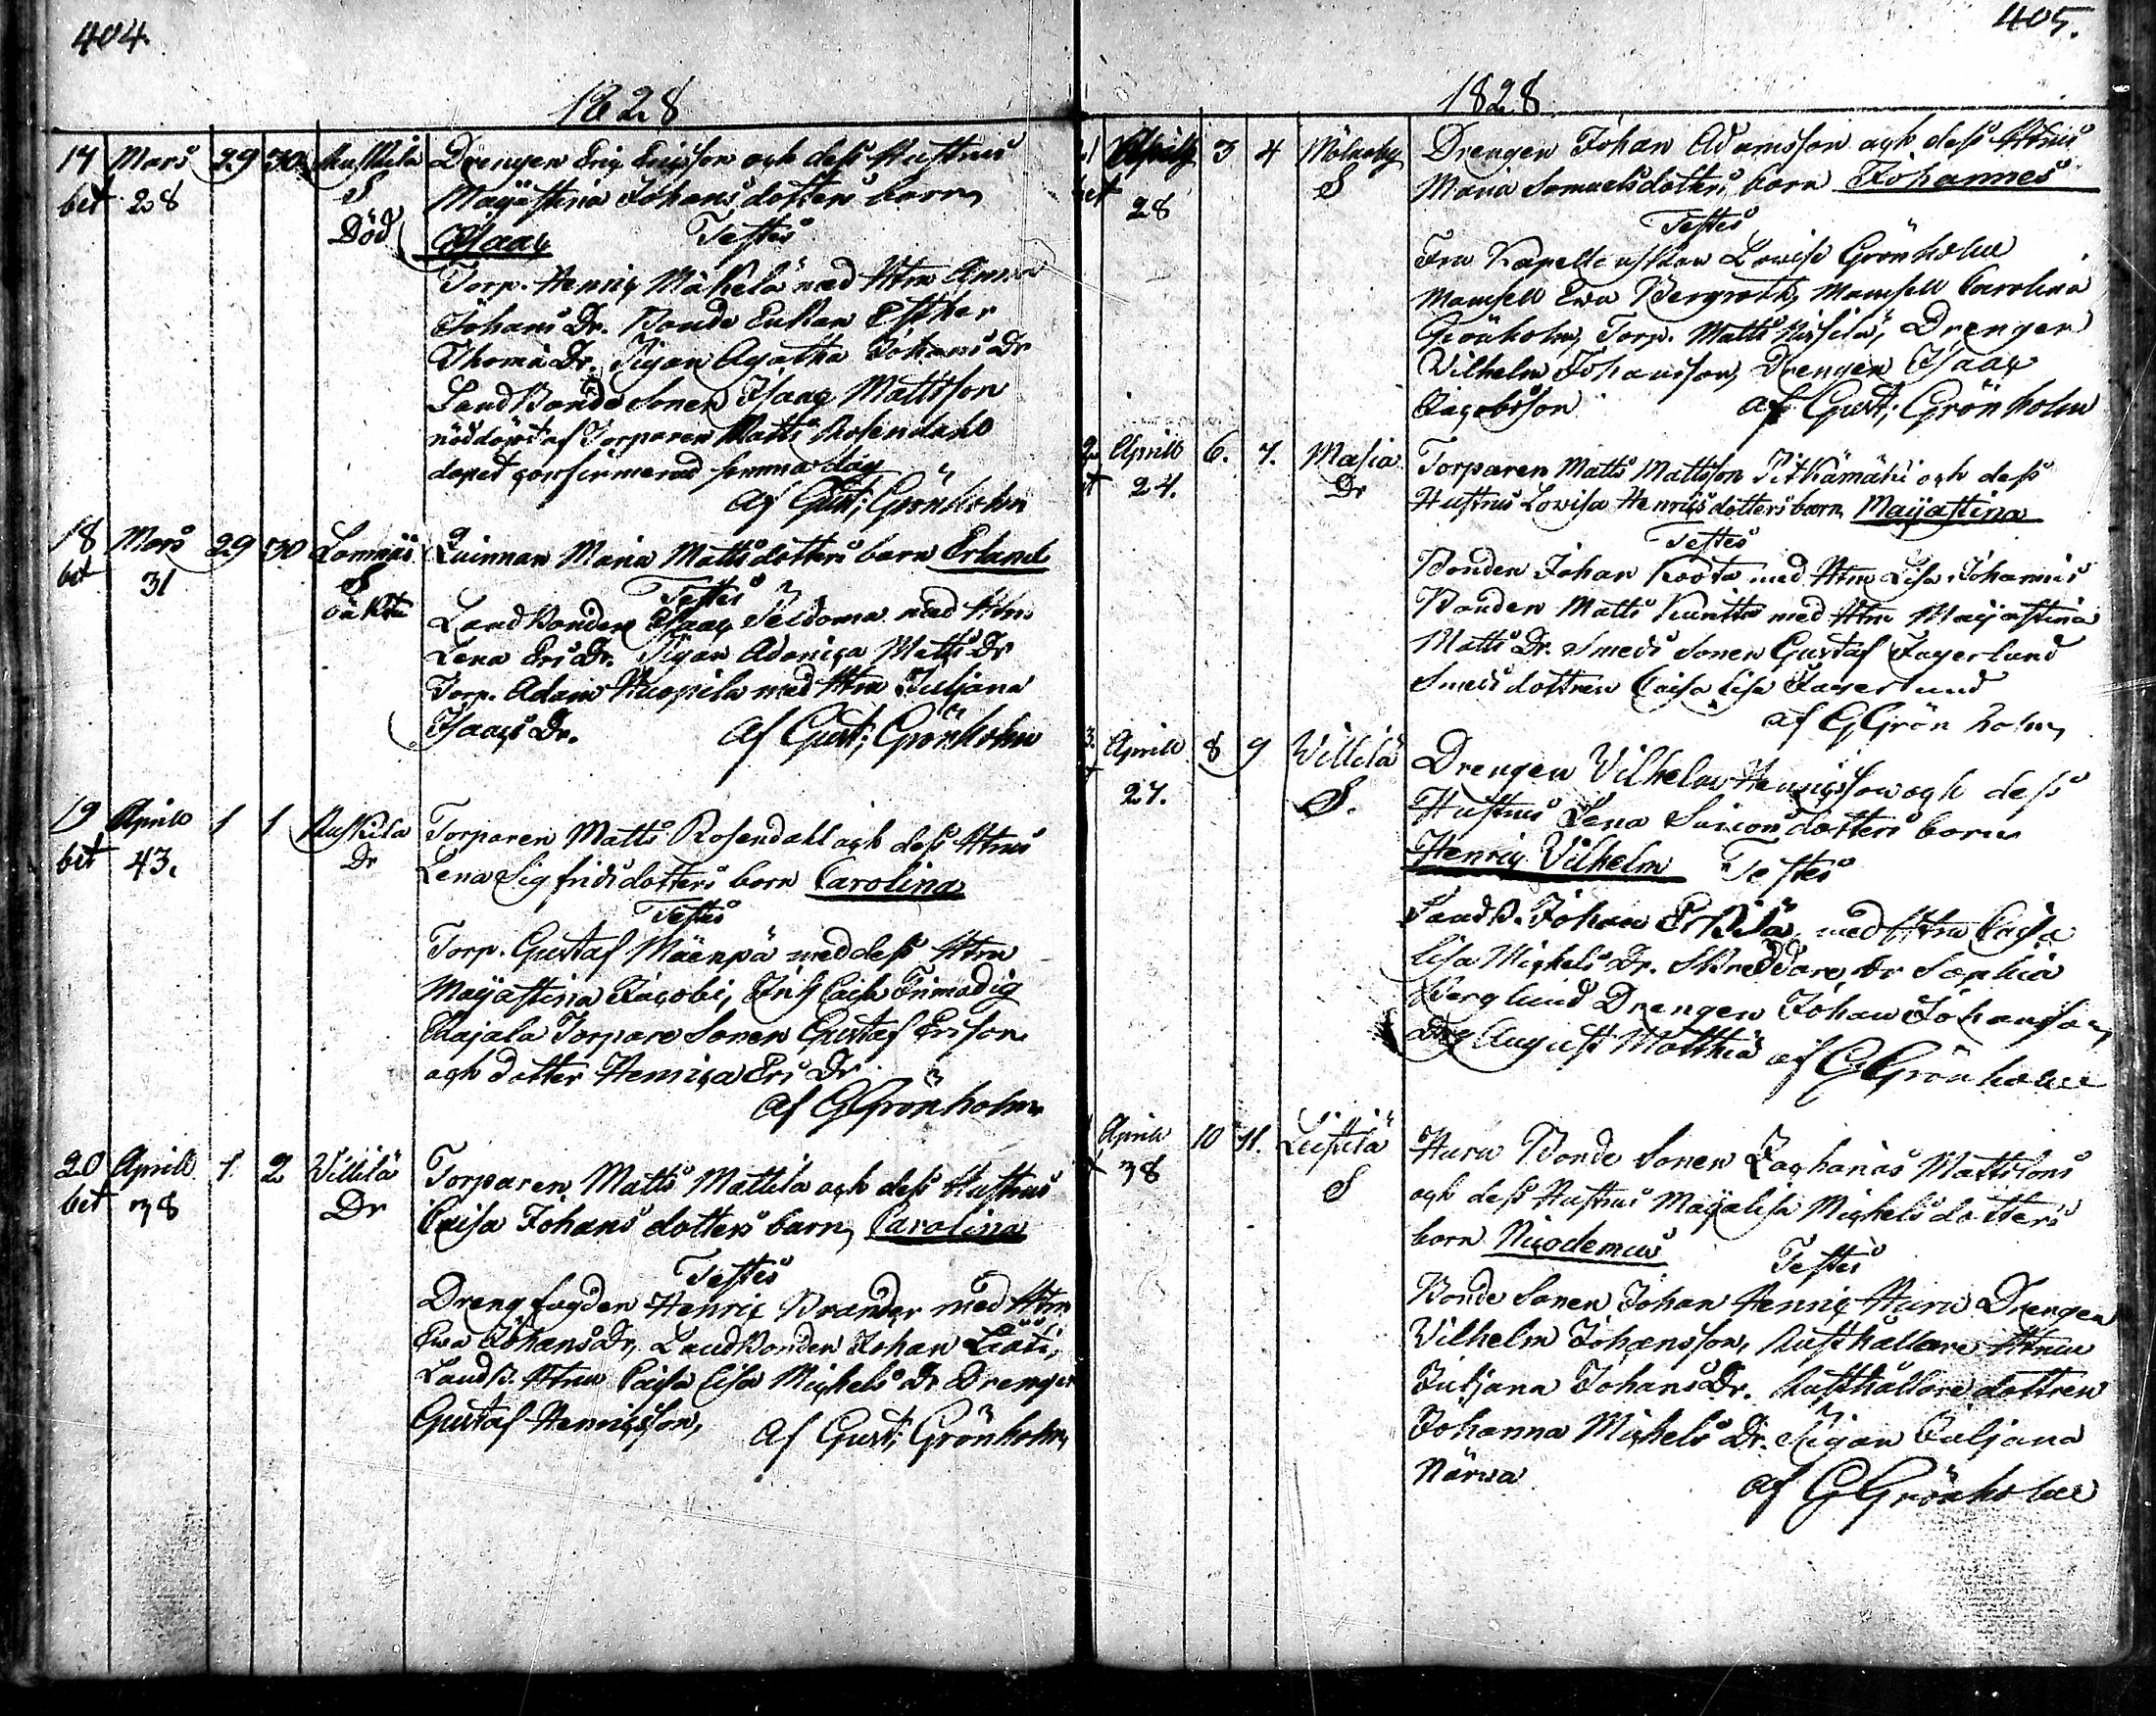 404.
1828
17 Mars 29 30 Ruskila Drengen Eriq Eriqsson och dess Hustrus
bet 28 S Majastina Johansdotters barn
Död Isaaq Testes
Torp. Henriq Mäkelä med Htru Anna
Johans Dr. Bonde Enkan Esther
Thomæ Dr. Pigan Agatha Johans Dr
LandBonde Sonen Isaaq Mattsson
nöddöpt af Torparen Matts Rosendahl
dopet confirmerad samma dag
af Gust: Grönholm
18 Mars 29 30 Lamnäs Quinnan Maria Mattsdotters barn Erland
bet 31 S Testes
oäkta LandBonden Isaaq Seldoma med Htru
Lena Ers Dr. Pigan Adamiqa Matts Dr
Torp. Adam Kuopila med Htru Juljana
Isaaqs Dr. af Gust: Grönholm
19 Aprill 1 1 Ruskila Torparen Matts Rosendahl och dess Htrus
bet 43. Dr Lena Sigfridsdotters barn Carolina
Testes
Torp. Gustaf Mäenpä med dess Htru
Majastina Jacobi, Frimodig
Torpare Sonen Gustaf Ersson
och dotter Henriqa Ers Dr
af GGrönholm
20 Aprill 1. 2 Villilä Torparen Matts Mattila och dess Hustrus
bet 38 Dr Caisa Johans dotters barn Carolina
Testes
Dreng fogden Henriq Brander med Htru
Ewa Johans Dr, LandBonden Johan
LandB. Htru Caisa Lisa Mickels Dr Drengen
Gustaf Henriqsson, af Gust: Grönholm
405.
1828
Aprill 3 4 Mölneby Drengen Johan Adamsson och dess Htrus
28 S Maria Samuelsdotters barn Johannes
Testes
Fru Kapellanskan Lovisa Grönholm
Mamsell Ewa Bergroth, Mamsell Carolina
Grönholm, Torp. Matts Drengen
Wilhelm Johansson, Drengen Isaaq
Jacobsson af Gust: Grönholm
Aprill 6. 7. Masia Torparen Matts Mattsson Pitkämäki och dess
24. Dr Hustrus Lovisa Henriqsdotters barn Majastina
Testes
Bonden Johan Kosta med Htru Lisa Johannis
Bonden Matts Kunttu med Htru Majastina
Matts Dr. Smeds Sonen Gustaf Fagerlund
Smeds dottren Caisa Lisa Fagerlund
af GGrönholm
3. Aprill 8 9 Villilä Drengen Vilhelm Henriqsson och dess
27. S. Hustrus Lena Simonsdotters barn
Henriq Vilhelm Testes
LandB. Johan Erkilä med Htru Caisa
Lisa Mickels Dr. Skreddare Dr Sophia
Berglund Drengen Johan Johansson,
August Matthiæ af GGrönholm
Aprill 10 11. Leistilä Huru Bonde Sonen Zachariäs Mattssons
38 S och dess Hustrus Majalisa Mickelsdotters
barn Nicodemus Testes
Bonde Sonen Johan Henriq Huru Drengen
Vilhelm Johansson, Rusthållare Htrun
Juljana Johans Dr. Rusthållare dottren
Johanna Mickels Dr. Pigan Juljana
Närwa af GGrönholm